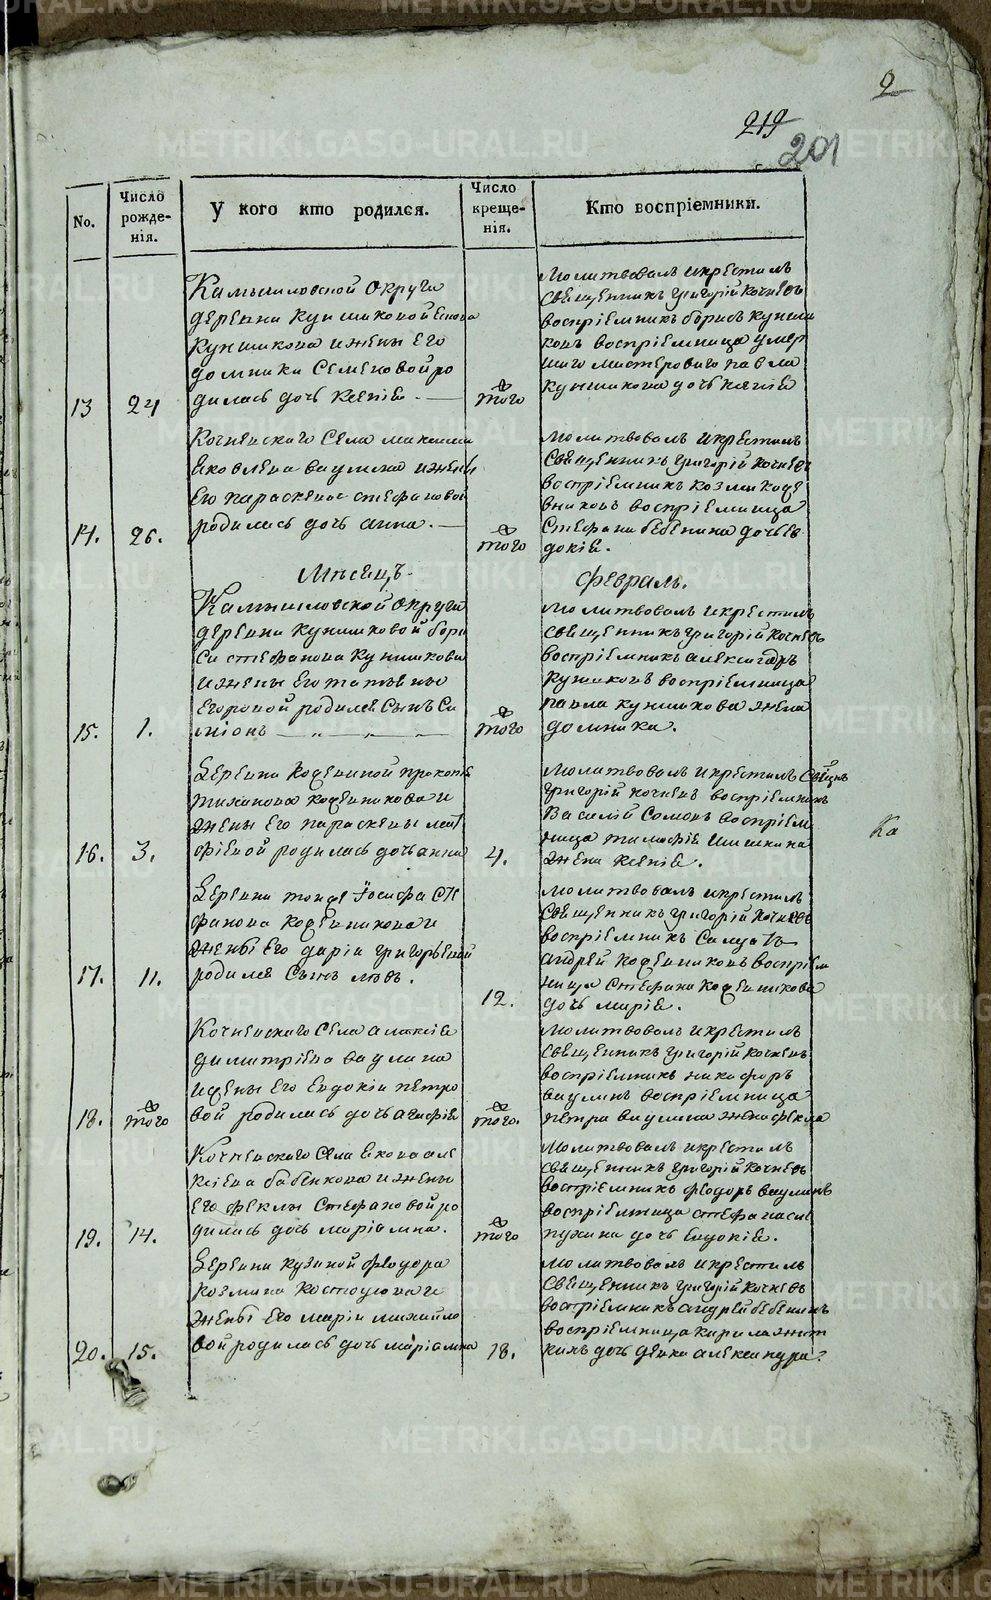 2
219
201
No.
Число рожде-нія.
У кого кто родился.
Число креще-нія.
Кто воспріемники.
Камышловской округи
деревни Куншиковой
Куншикова и жены его
домники Семеновой ро
13 24 дилась дочь Ксенія. — того
молитвовалъ и крестилъ
священникъ григорій кочневъ
воспріемникъ борисъ Кунши
ковъ воспріемница умер
шаго мастероваго павла
куншикова дочь ксенія
Кочневскаго Села
яковлева ваулина и жены
Его параскевы стефановой
14. 26. родилась дочь анна. — того
молитвовалъ и крестилъ
Священникъ григорій Кочневъ
воспріемникъ козма коже
вниковъ воспріемница
Стефана бебенина дочь ев
докія.
Мѣсецъ Февраль.
Камышловской округи
деревни Куншиковой бори
са стефанова Куншикова
и жены его татьяны
Егоровой родился Сынъ Си
15. 1. міонъ — „ — „ — того
молитвовалъ и крестилъ
священникъ григорій кочневъ
воспріемникъ александръ
Куншиковъ воспріемница
павла куншикова жена
домника.
Деревни Кожевиной прокопья
тихонова кожевникова и
жены его параскевы мат
16. 3. фіевой родилась дочь анна 4.
молитвовалъ и крестилъ Свящнъ
григорій кочневъ воспріемникъ
Василій воспріем
ница тимофія шишкина
жена ксенія.
Ка
Деревни тояже Іосифа сте
фанова кожевникова и
жены его даріи григорьевой
17. 11. родился Сынъ левъ. 12.
молитвовалъ и крестилъ
Священникъ григорій кочневъ
воспріемникъ Салдатъ
андрей кожевниковъ воспріем
ница стефана кожевникова
дочь марія.
Кочневскаго Села
димитріева ваулина
и жены его Евдокіи петро
18. того вой родилась дочь агафія того.
молитвовалъ и крестилъ
священникъ григорій кочневъ
воспріемникъ никифоръ
ваулинъ воспріемница
петра ваулина жена фекла
Кочневскаго Села якова але
ксіева бабенкова и жены
его феклы стефановой ро
19. 14. дилась дочь маріамна. того
молитвовалъ и крестилъ
священникъ григорій кочневъ
воспріемникъ феодоръ ваулинъ
воспріемница
дочь евдокія.
Деревни кузиной феодора
козмина костоусова и
жены его маріи михайло
20. 15. вой родилась дочь маріамна 18.
молитвовалъ и крестилъ
Священникъ григорій кочневъ
воспріемникъ андрей бебенинъ
воспріемница кирила
дочь девка александра.
METRIKI.GASO-URAL.RU